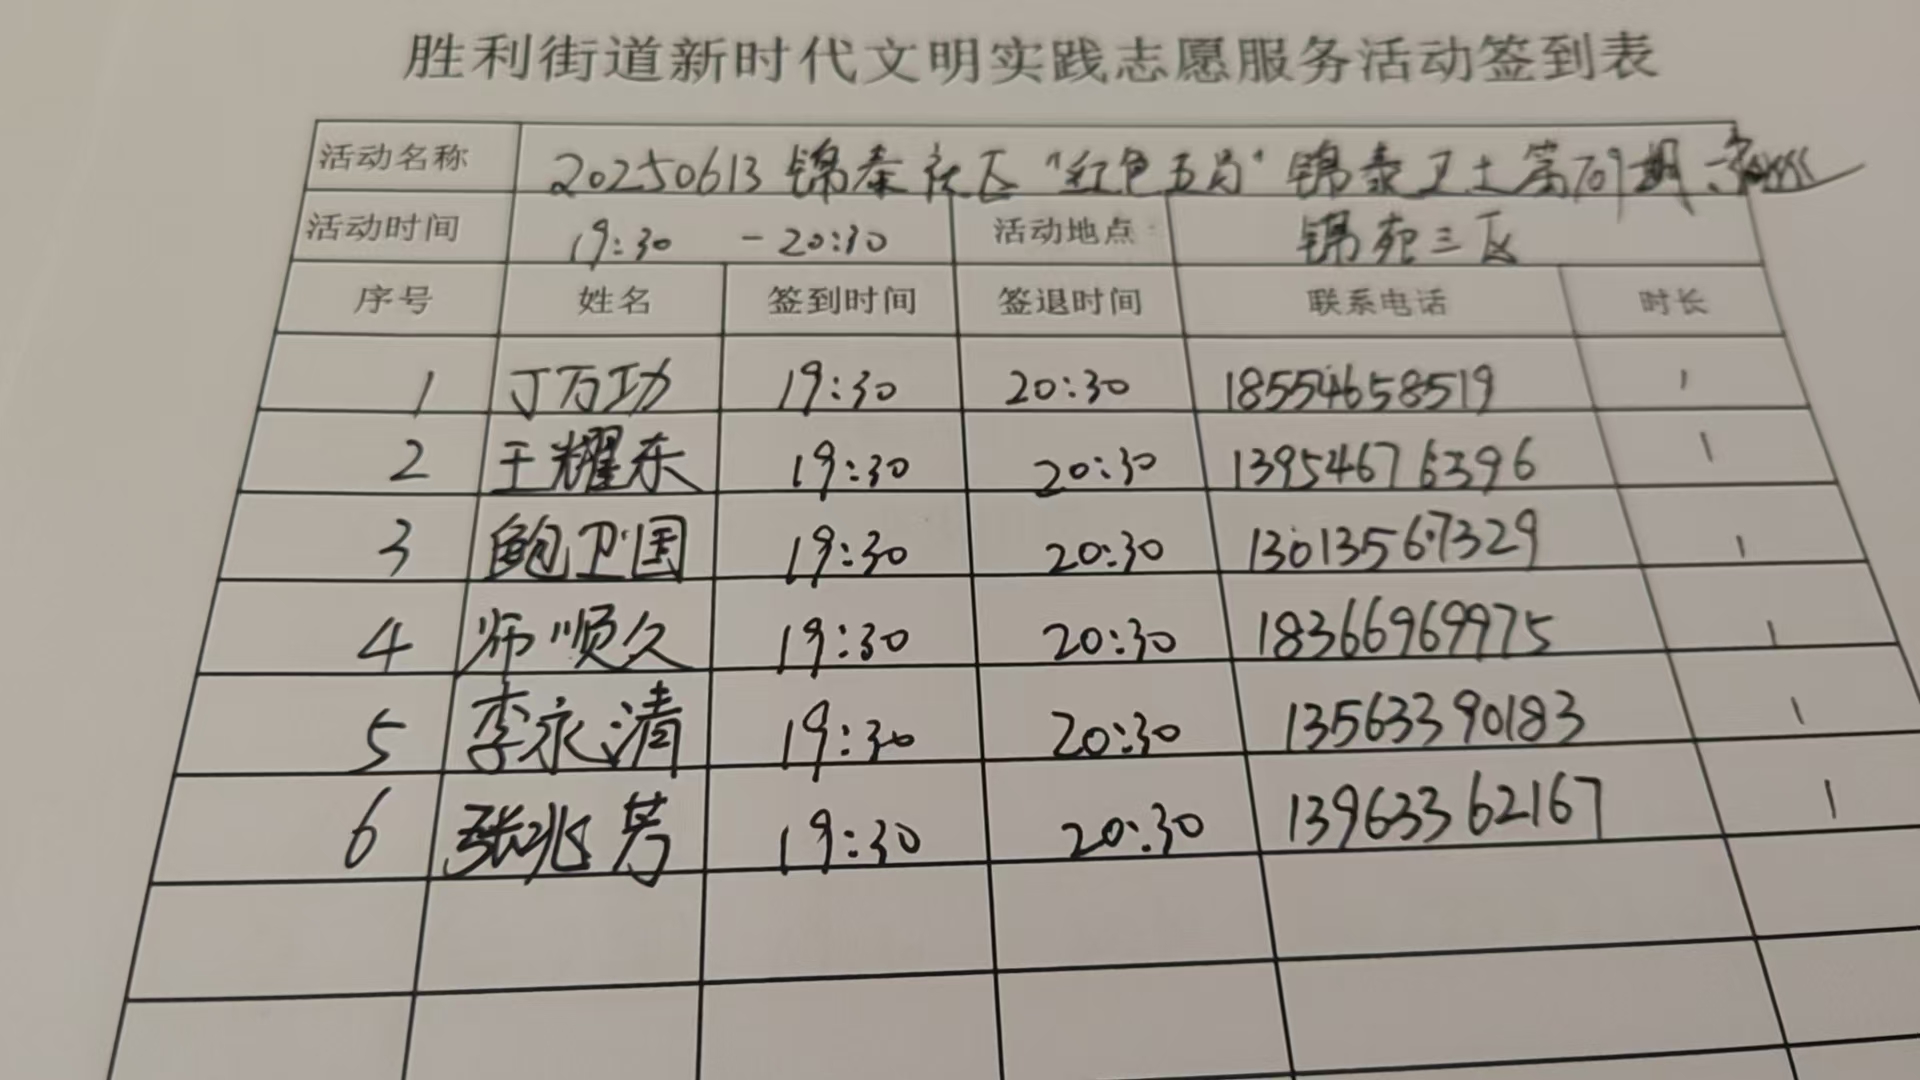 胜利街道新时代文明实践志愿服务活动签到表
活动名称 20250613锦泰社区"红色五员"锦泰卫士第709期
活动时间 19:30 -20:30 活动地点 锦苑三区
序号 姓名 签到时间 签退时间 联系电话 时长
1 丁万功 19:30 20:30 18554658519 1
2 王耀东 19:30 20:30 13954676396 1
3 鲍卫国 19:30 20:30 13013567329 1
4 师顺久 19:30 20:30 18366969975 1
5 李永清 19:30 20:30 13563390183 1
6 张兆芳 19:30 20:30 13963362167 1